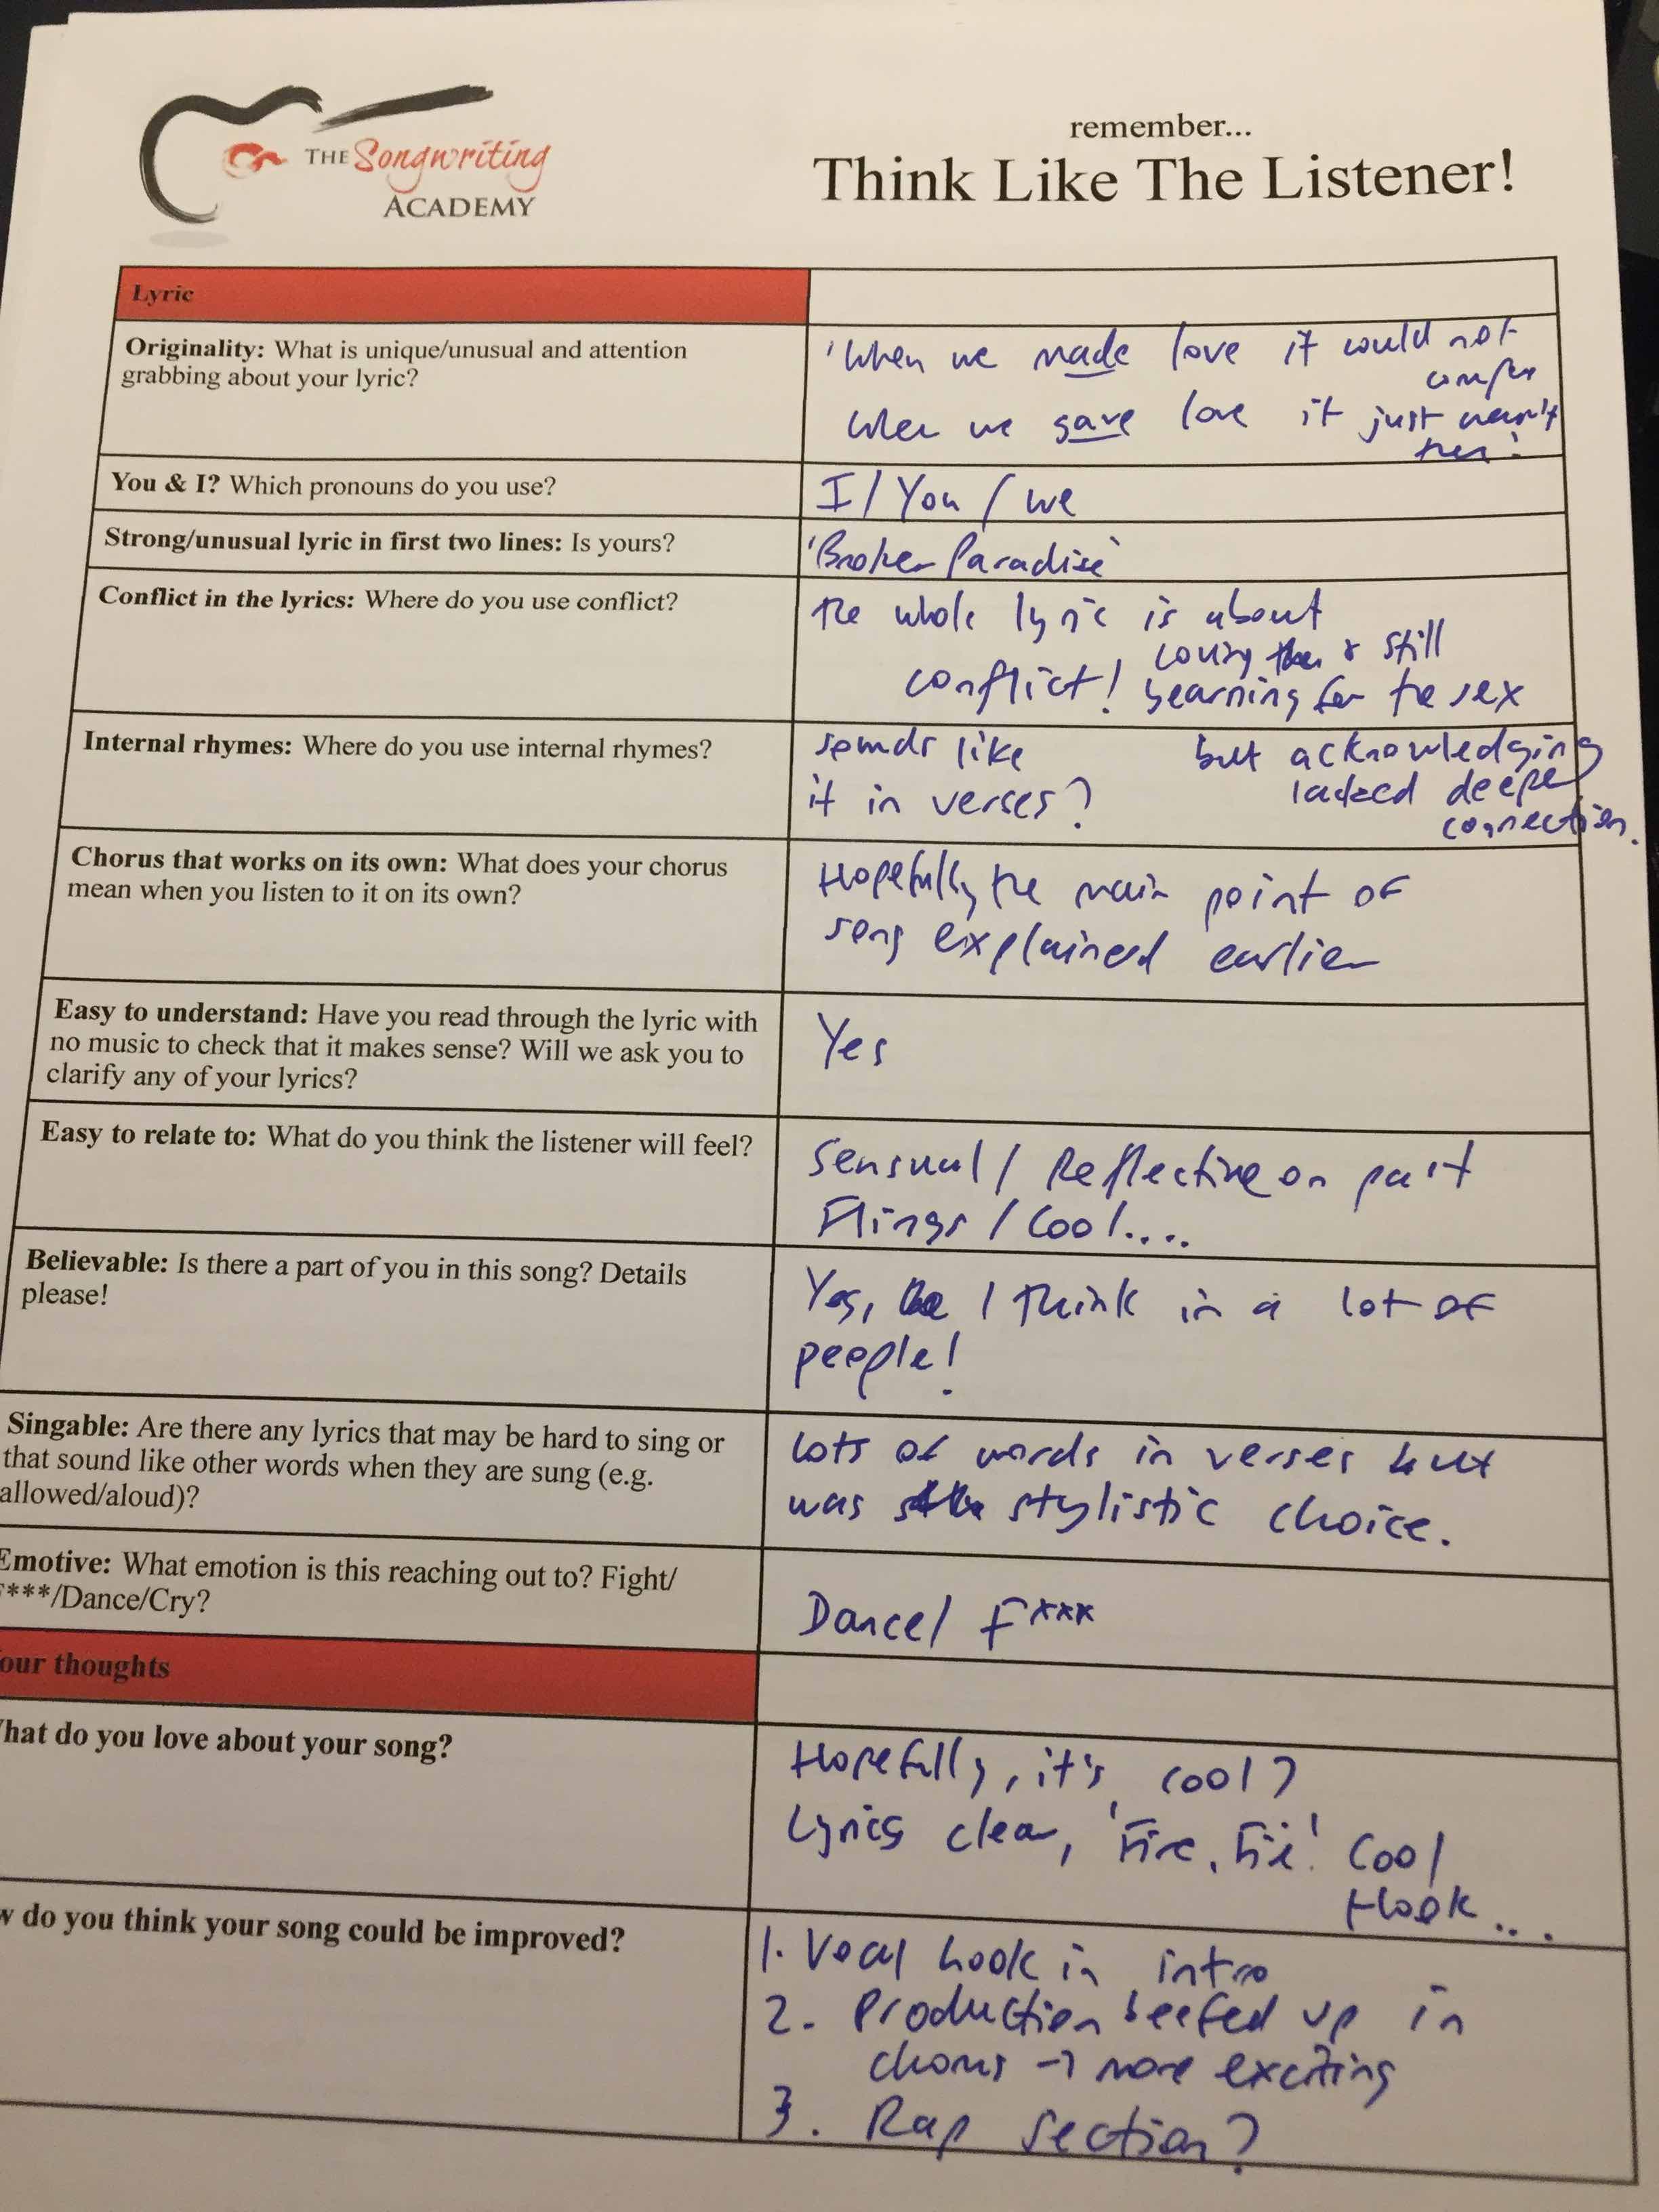 THE Songwriting
ACADEMY
remember...
Think Like The Listener!
Lyric
Originality: What is unique/unusual and attention
grabbing about your lyric?
'When we made love it could not
when we gave love it just wasn't
You & I? Which pronouns do you use?
I / You / we
Strong/unusual lyric in first two lines: Is yours?
'Broken Paradise'
Conflict in the lyrics: Where do you use conflict?
the whole lyric is about
conflict! loving & still
yearning for the sex
but acknowledging
lacked deeper
connection.
Internal rhymes: Where do you use internal rhymes?
sounds like
it in verses?
Chorus that works on its own: What does your chorus
mean when you listen to it on its own?
Hopefully the main point of
song explained earlier
Easy to understand: Have you read through the lyric with
no music to check that it makes sense? Will we ask you to
clarify any of your lyrics?
Yes
Easy to relate to: What do you think the listener will feel?
Sensual / Reflective on past
Flings / Cool....
Believable: Is there a part of you in this song? Details
please!
Yes, I think in a lot of
people!
Singable: Are there any lyrics that may be hard to sing or
that sound like other words when they are sung (e.g.
allowed/aloud)?
Lots of words in verses but
was stylistic choice.
Emotive: What emotion is this reaching out to? Fight/
***/Dance/Cry?
Dance / F***
our thoughts
hat do you love about your song?
Hopefully, it's cool?
Lyrics clear, 'Fire, Fire' Cool
Hook ...
w do you think your song could be improved?
1. Vocal hook in intro
2. Production beefed up in
chorus → more exciting
3. Rap section?